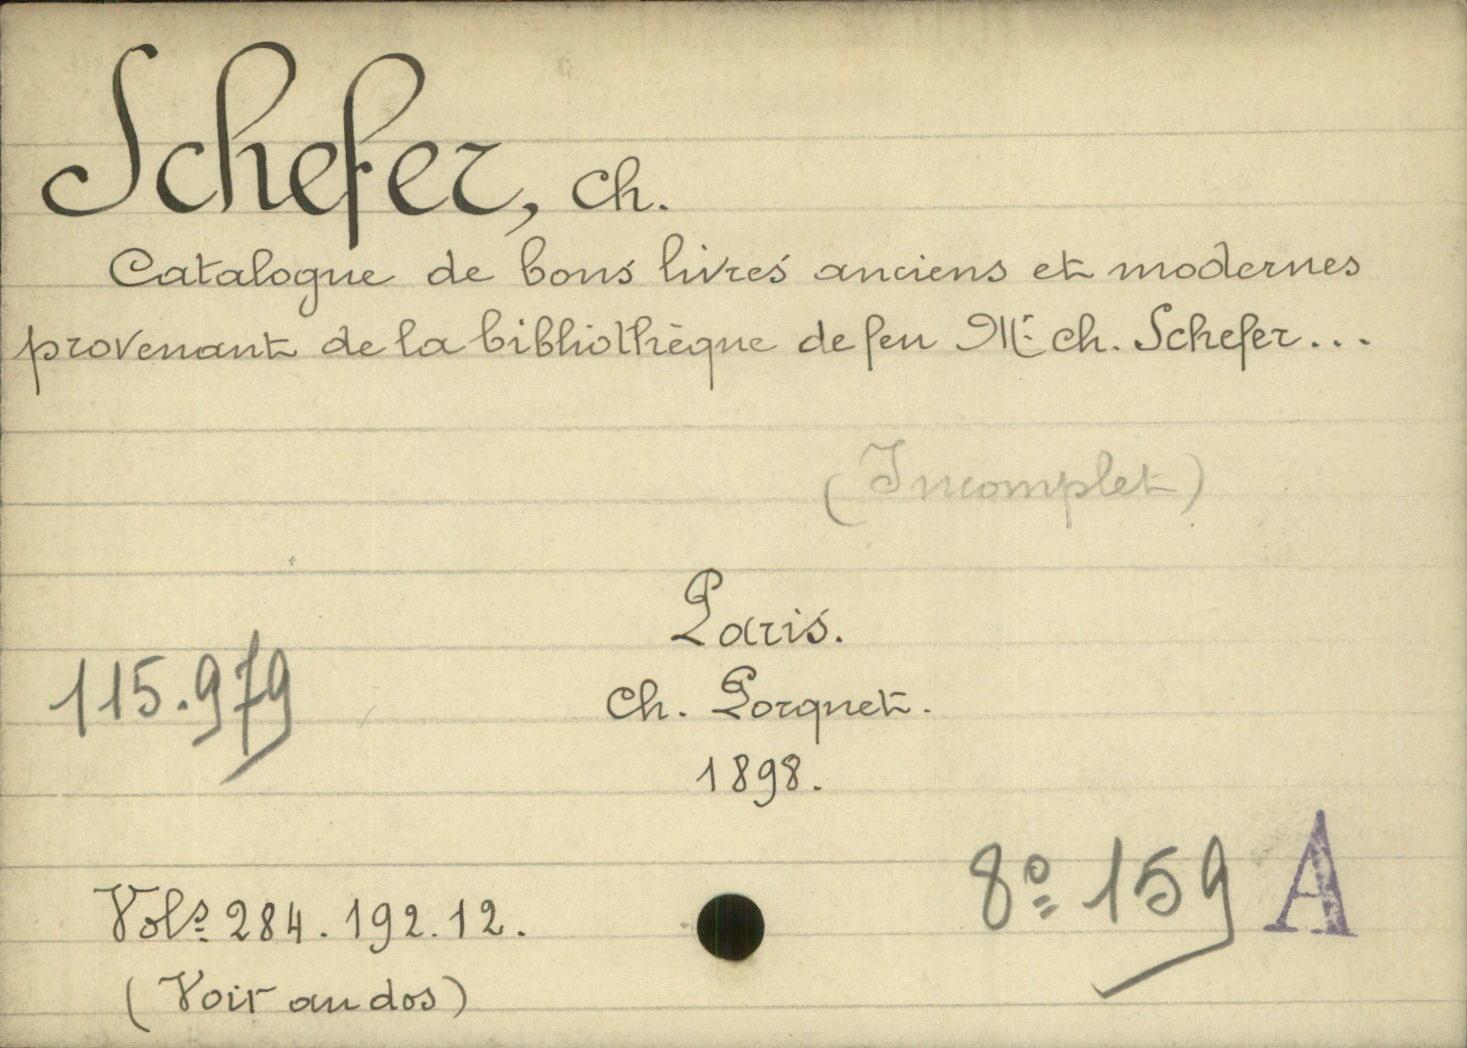 Schefer, Ch.
Catalogue de bons livres anciens et modernes
provenant de la bibliothèque de feu Mr. Ch. Schefer...
(Incomplet)
Paris.
115.979
Ch. Porquet.
1898.
8º 159 A
Vols. 284.192.12.
(Voir au dos)